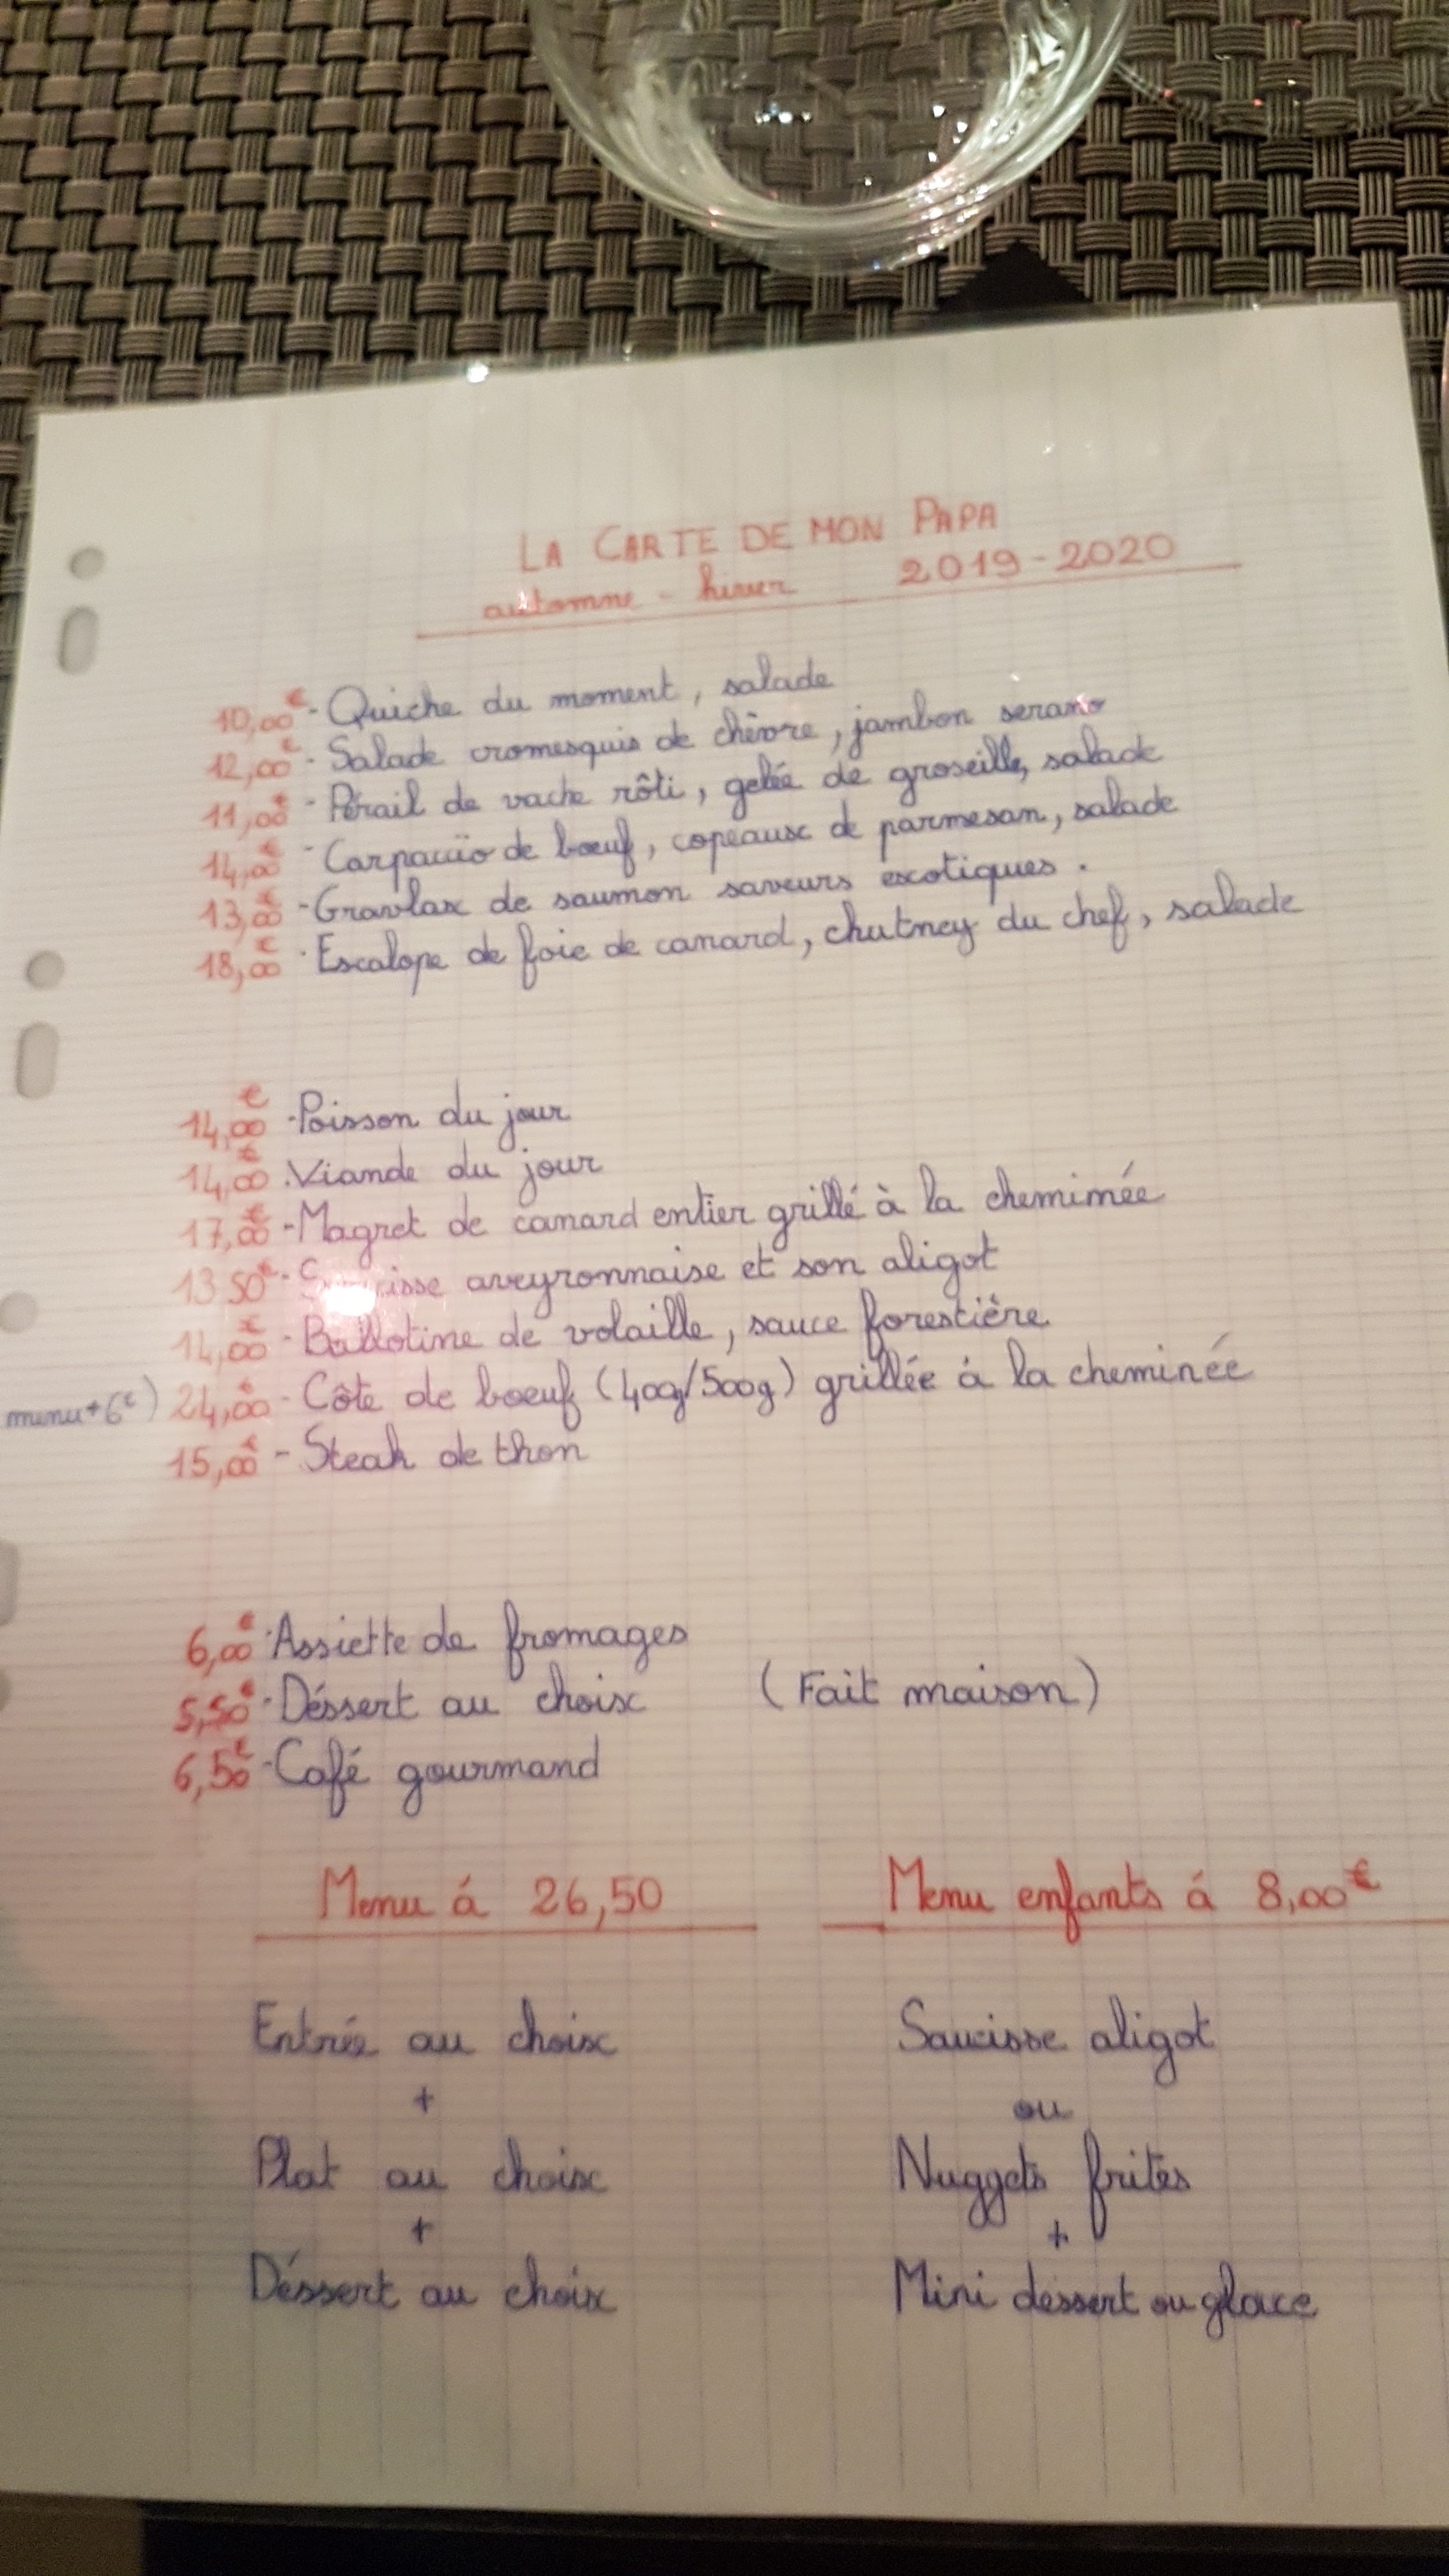 LA CARTE DE MON PAPA
automne - hiver 2019-2020
10,00€ - Quiche du moment, salade
12,00€ - Salade cromesquis de chèvre, jambon serano
11,00€ - Pérail de vache rôti, gelée de groseille, salade
14,00€ - Carpaccio de bœuf, copeaux de parmesan, salade
13,00€ - Gravlax de saumon saveurs exotiques.
18,00€ - Escalope de foie de canard, chutney du chef, salade
14,00€ - Poisson du jour
14,00€ - Viande du jour
17,00€ - Magret de canard entier grillé à la cheminée
13 50€ - Saucisse aveyronnaise et son aligot
14,00€ - Ballotine de volaille, sauce forestière
menu+6€) 24,00€ - Côte de bœuf (400g/500g) grillée à la cheminée
15,00€ - Steak de thon
6,00€ - Assiette de fromages
5,50€ - Déssert au choix (Fait maison)
6,50€ - Café gourmand
Menu á 26,50
Entrée au choix
+
Plat au choix
+
Déssert au choix
Menu enfants á 8,00€
Saucisse aligot
ou
Nuggets frites
+
Mini dessert ou glace